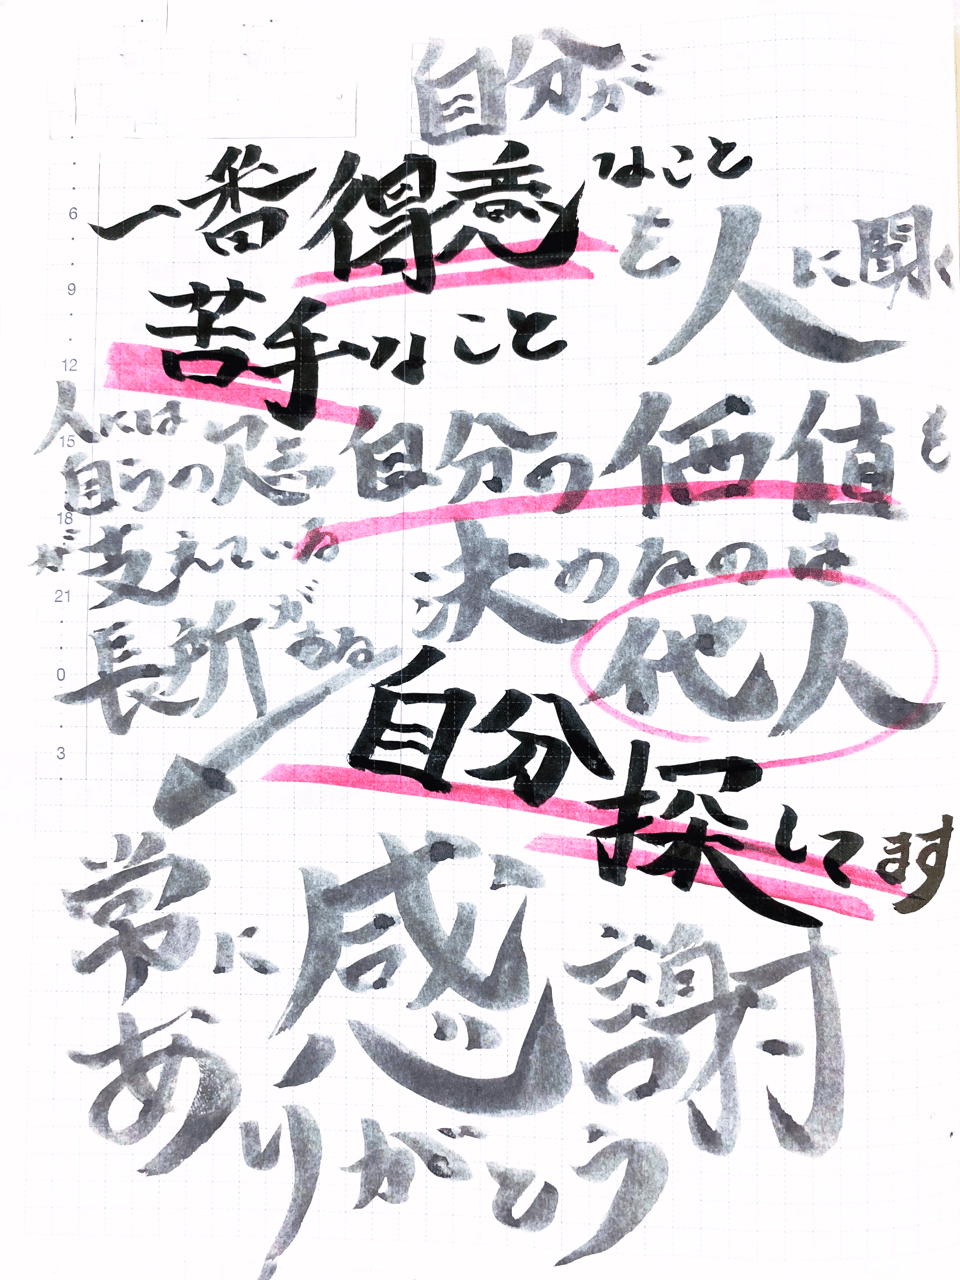 自分が
一番得意なこと
を人に聞く
苦手なこと
人には
自分の
が支えている
長所が
ある
自分の価値も
決めるのは
他人
自分探してます
常に感謝
ありがとう
6
9
12
15
18
21
0
3